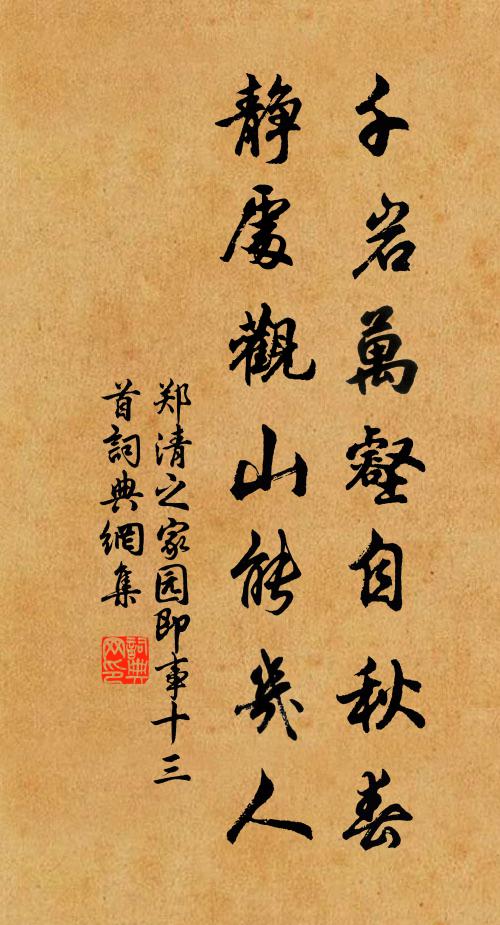 千岩萬壑自秋春
靜處觀山能幾人
郑清之家园即事十三
首詞典網集
詞典网印